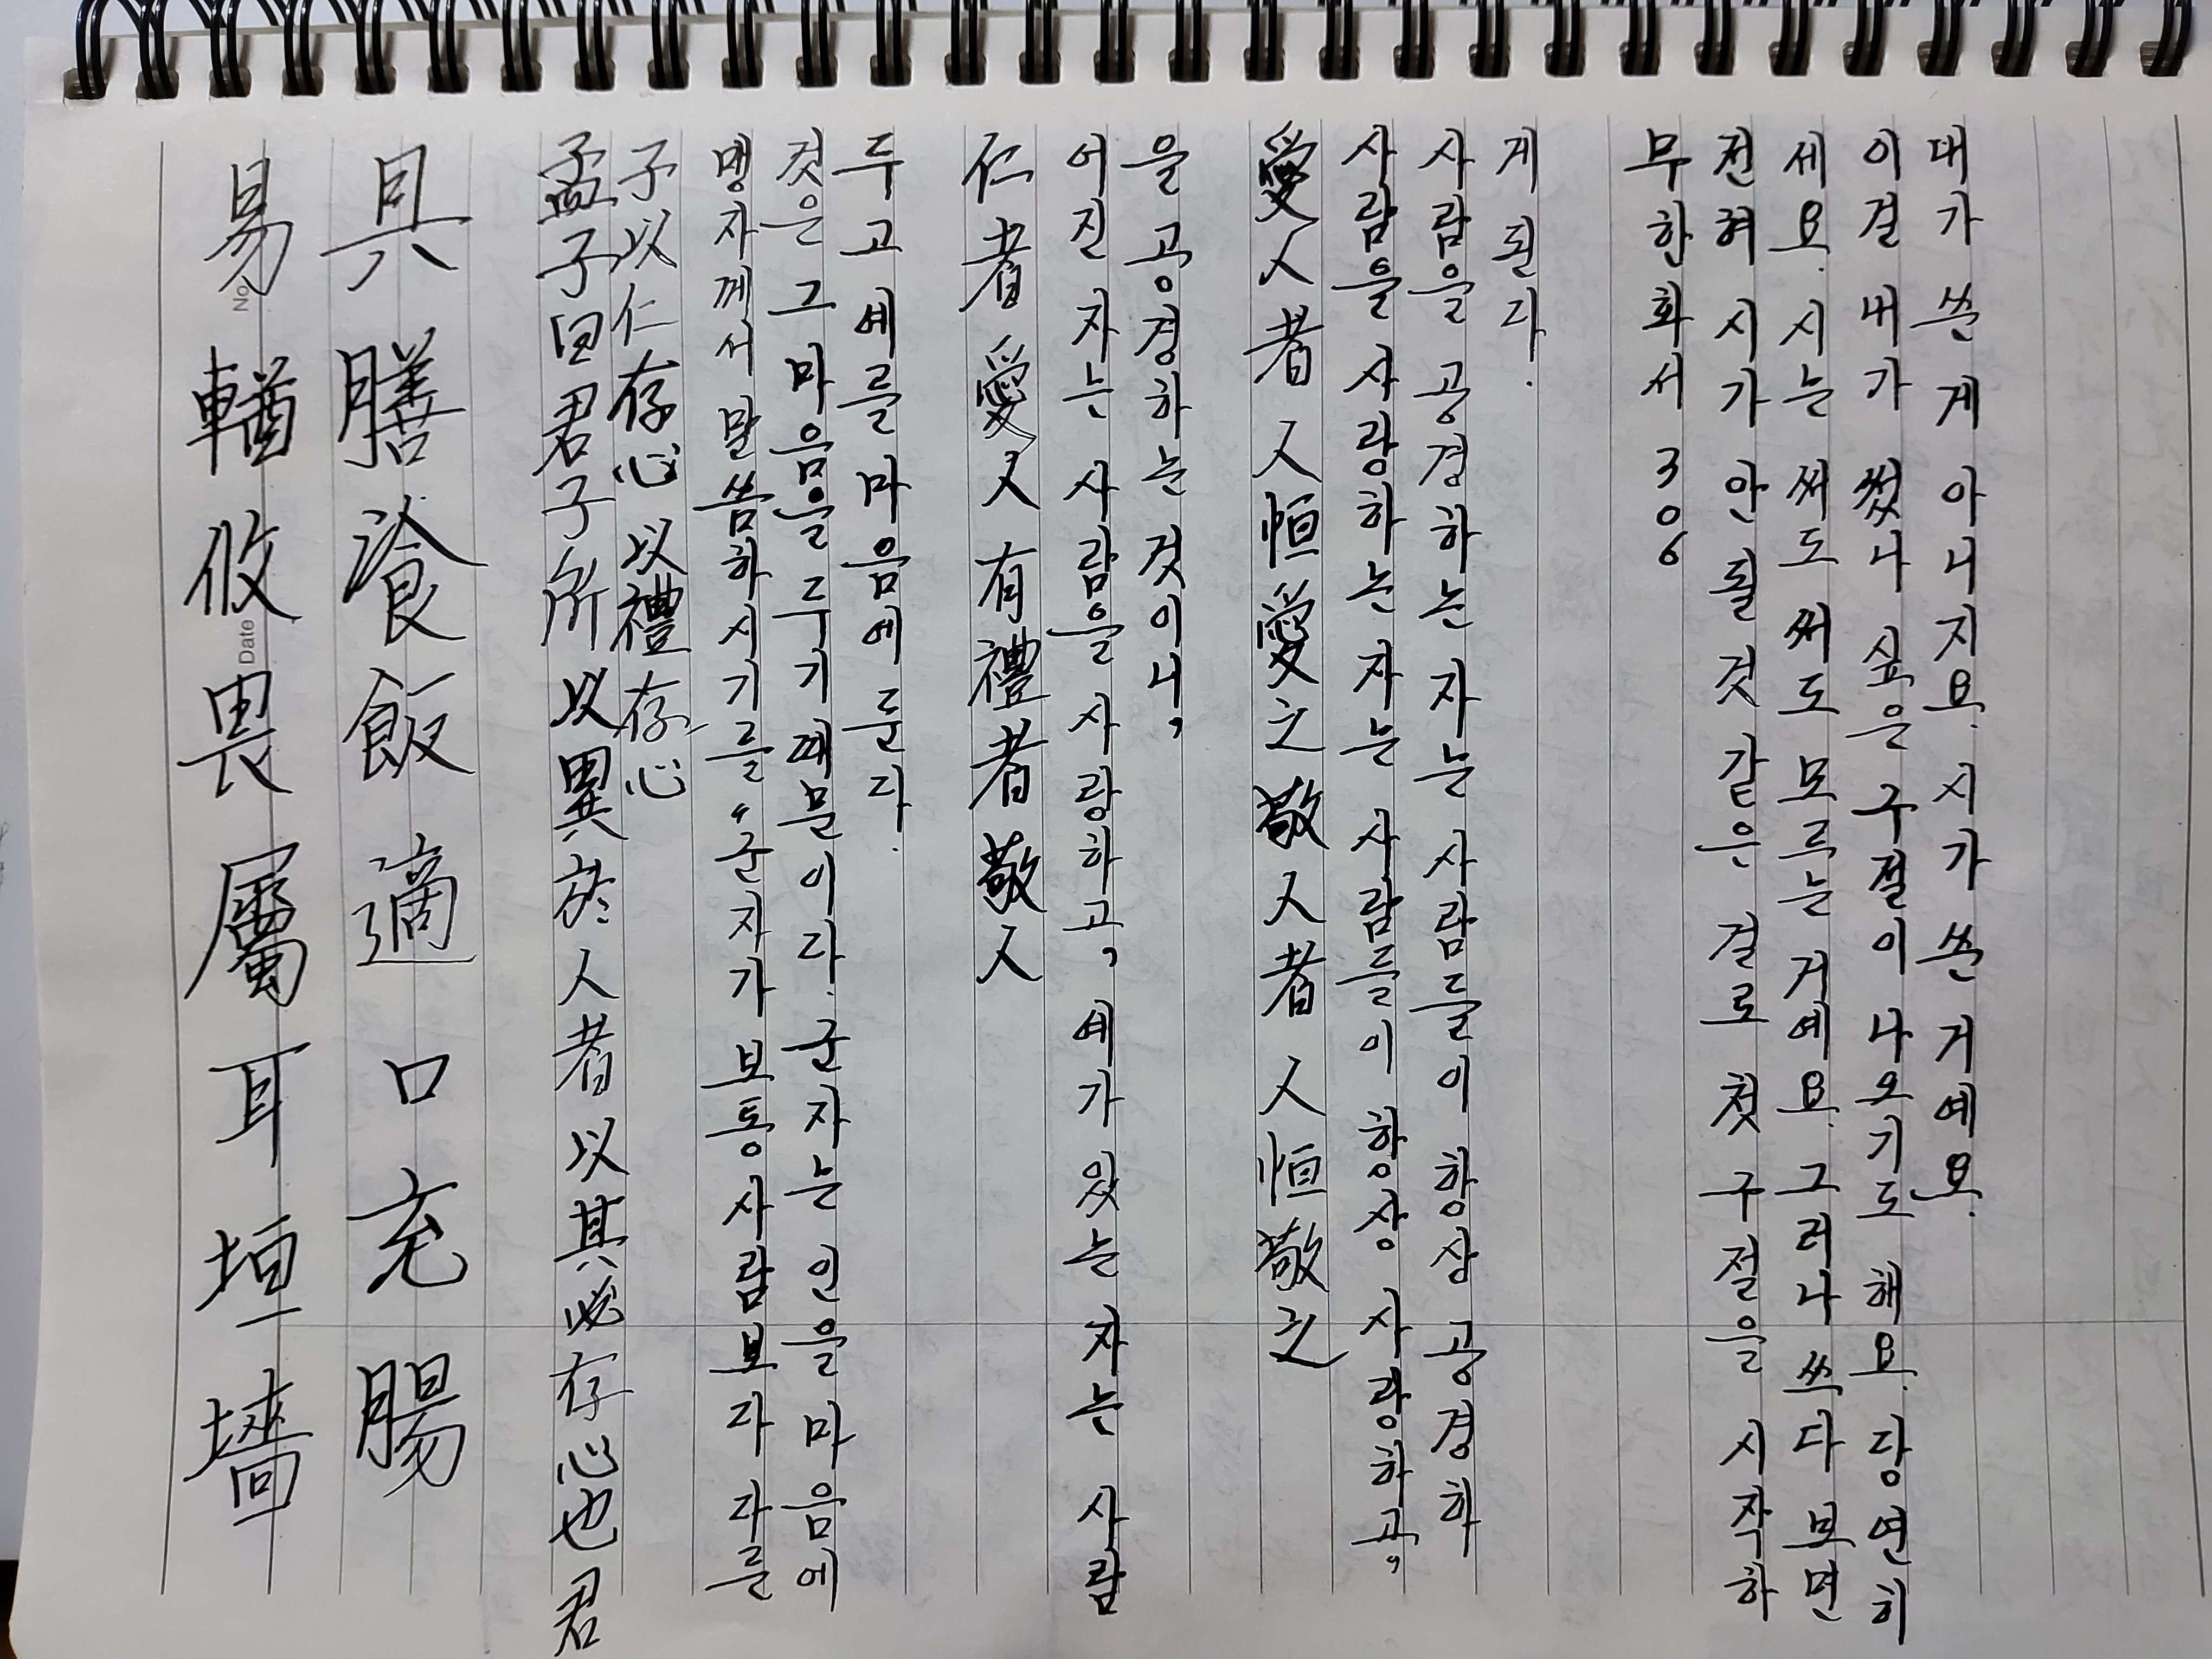 No.
Date
易輶攸畏屬耳垣墻
具膳飡飯適口充腸
孟子曰君子所以異於人者以其存心也君
子以仁存心 以禮存心
맹자께서 말씀하시기를 “군자가 보통 사람보다 다를
것은 그 마음을 두기 때문이다. 군자는 인을 마음에
두고 예를 마음에 둔다.
仁者愛人 有禮者敬人
어진 자는 사람을 사랑하고, 예가 있는 자는 사람
을 공경하는 것이니,
愛人者 人恒愛之 敬人者 人恒敬之
사람을 사랑하는 자는 사람들이 항상 사랑하고,
사람을 공경하는 자는 사람들이 항상 공경하
게 된다.
무한화서 306
전혀 시가 안 될 것 같은 걸로 첫 구절을 시작하
세요. 시는 써도 써도 모르는 거예요. 그러나 쓰다 보면
이걸 내가 썼나 싶은 구절이 나오기도 해요. 당연히
내가 쓴 게 아니지요. 시가 쓴 거예요.